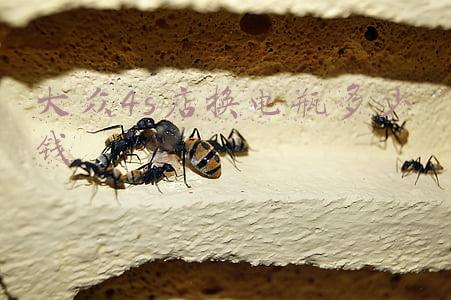 大众4s店换电瓶多少
钱